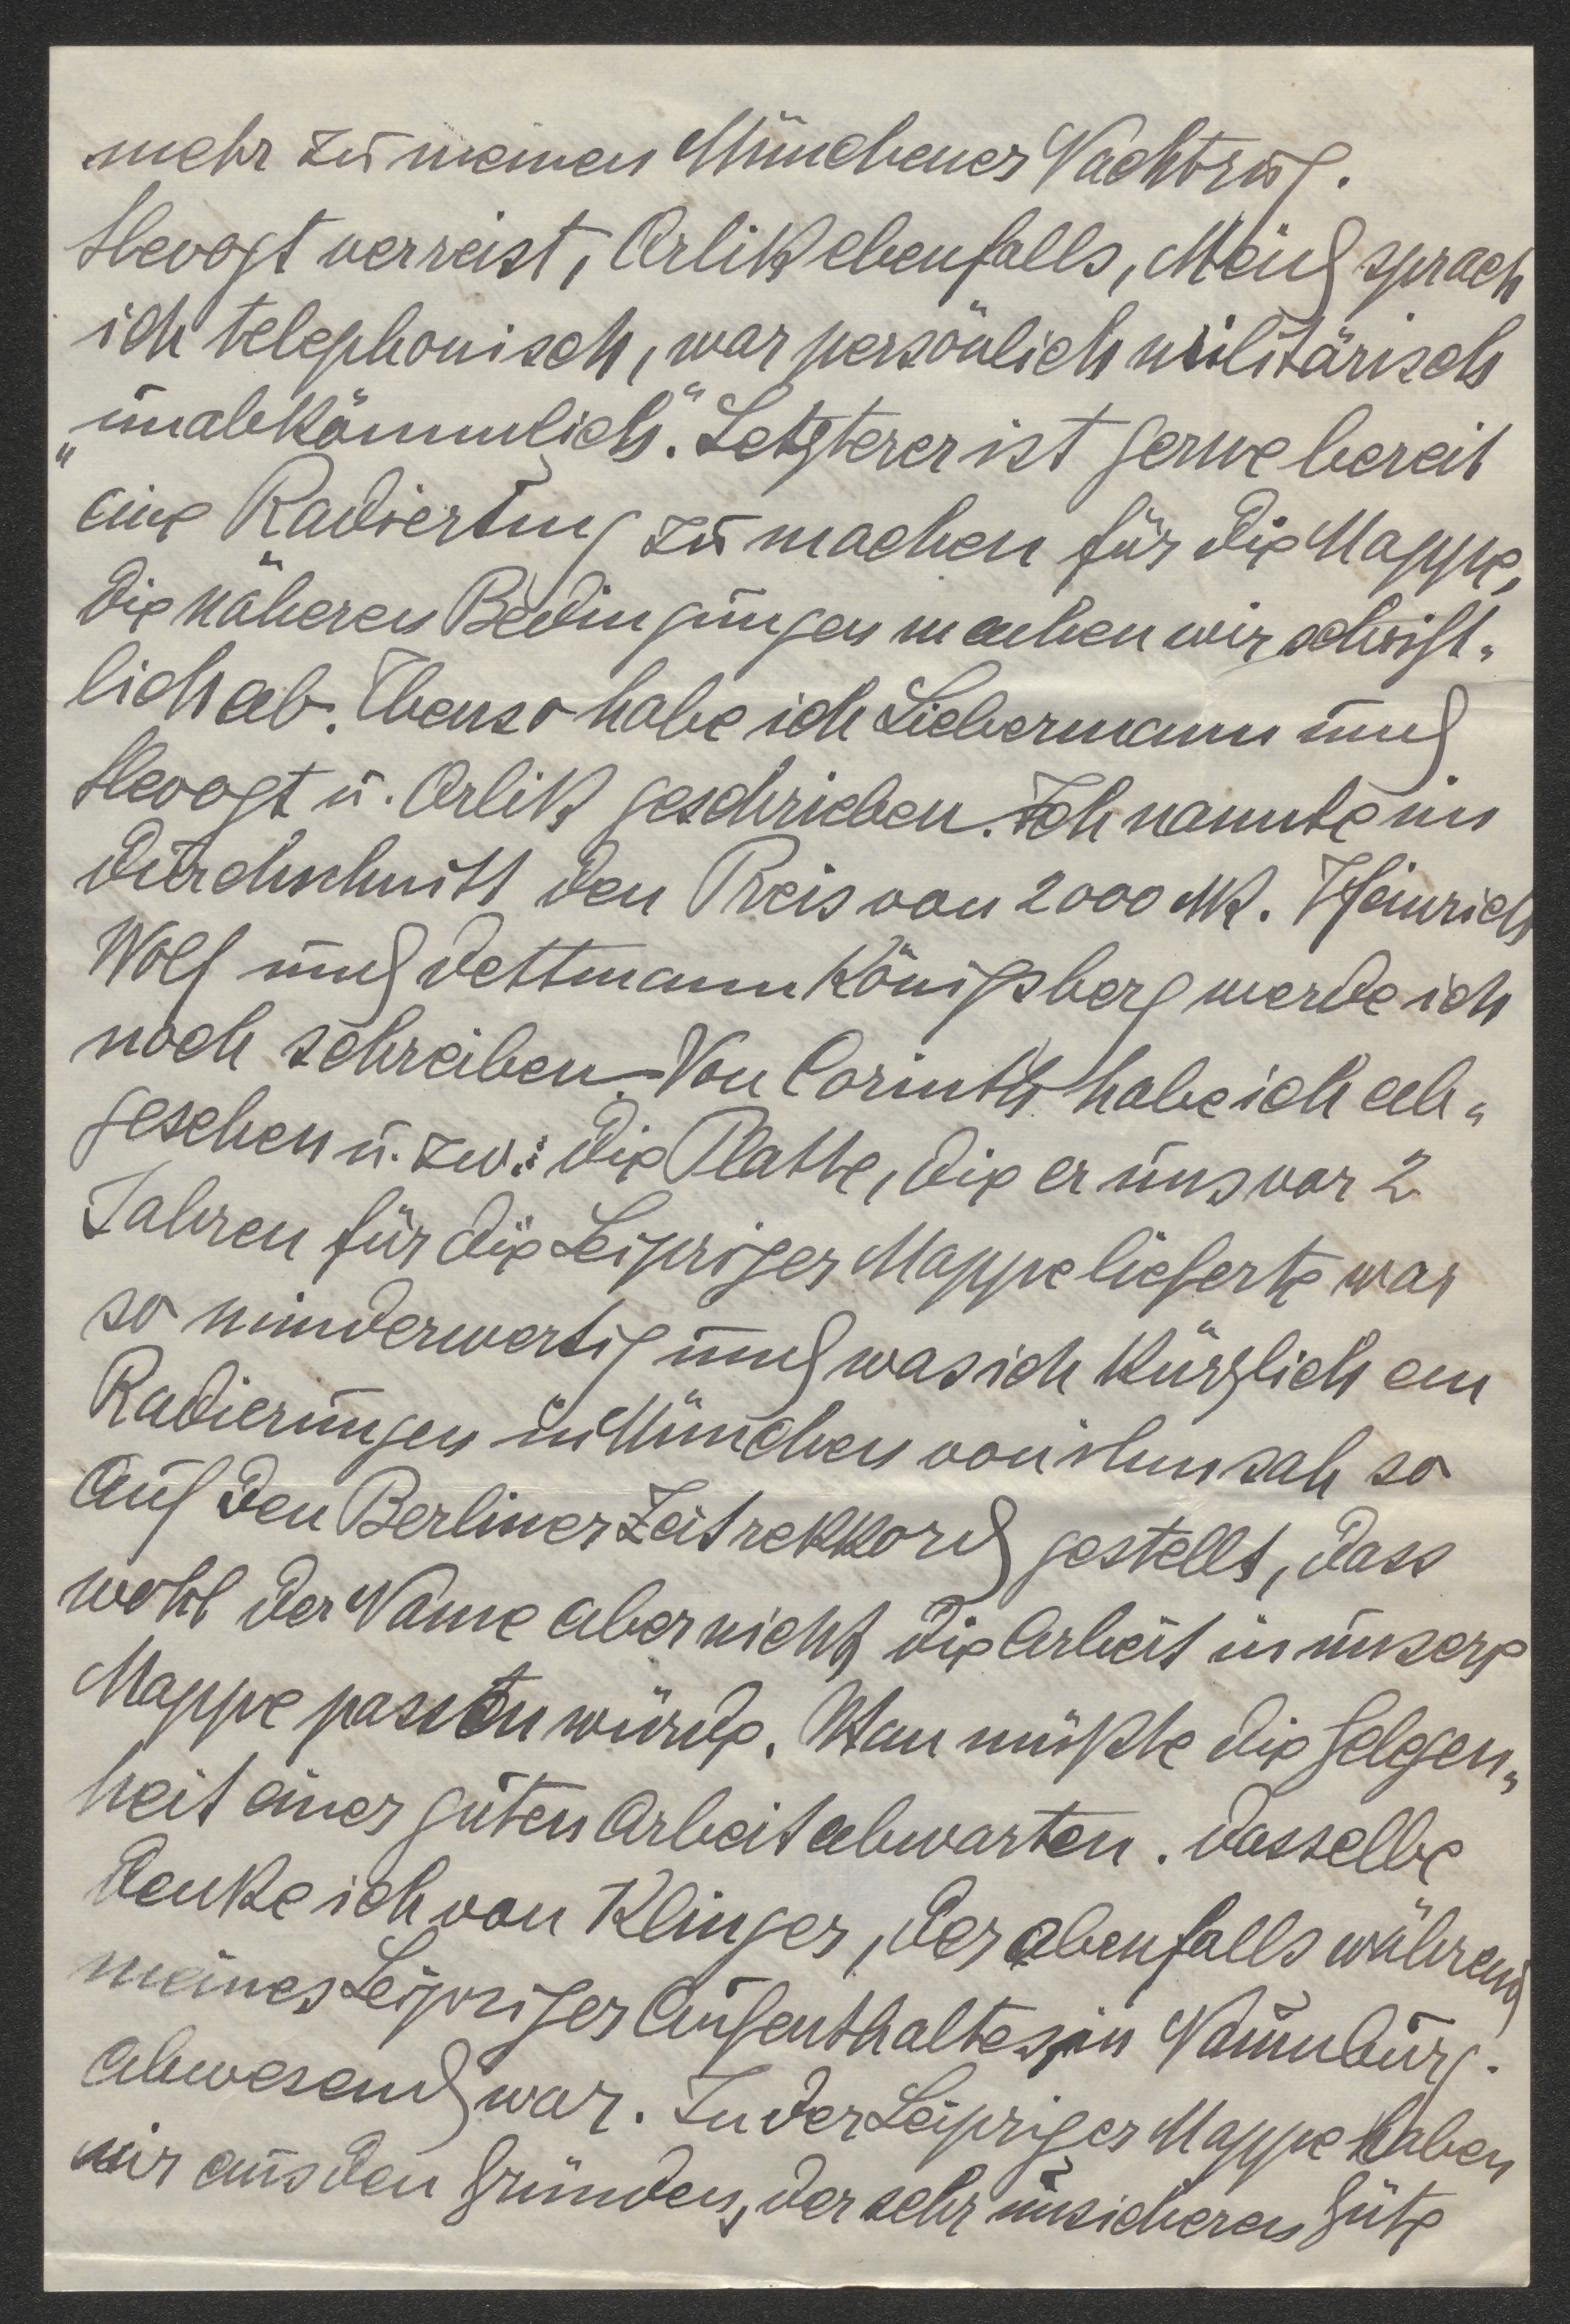 mehr zu meinem Münchener Nachtzug.
Slevogt verreist, Orlik ebenfalls, Meid sprach
ich telephonisch, war persönlich militärisch
„unabkömmlich“. Letzterer ist gerne bereit
eine Radierung zu machen für die Mappe,
die näheren Bedingungen machen wir schrift-
lich ab. Ebenso habe ich Liebermann und
Slevogt u. Orlik geschrieben. Ich nannte im
Durchschnitt den Preis von 2000 Mk. Heinrich
Wolf und Dettmann Königsberg werde ich
noch schreiben. Von Corinth habe ich ab-
gesehen u. zw.: die Platte, die er uns vor 2
Jahren für die Leipziger Mappe lieferte war
so minderwertig und was ich kürzlich an
Radierungen in München von ihm sah so
auf den Berliner Zeitrekkord gestellt, dass
wohl der Name aber nicht die Arbeit in unsere
Mappe passen würde. Man müßte die Gelegen-
heit einer guten Arbeit abwarten. Dasselbe
denke ich von Klinger, der ebenfalls während
meines Leipziger Aufenthaltes, in Naumburg.
abwesend war. In der Leipziger Mappe haben
wir aus den Gründen, der sehr unsicheren Güte